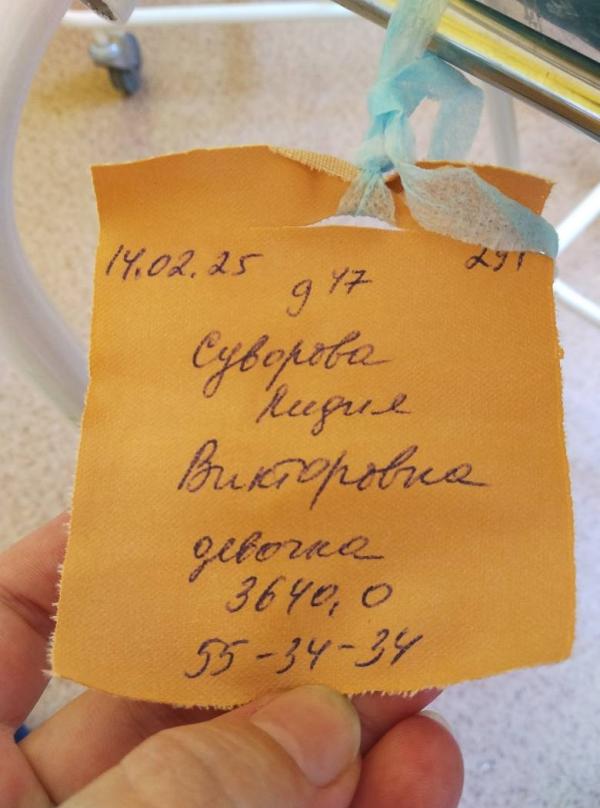 14.02.25
9 47
Суворова
Лидия
Викторовна
девочка
3640,0
55-34-34